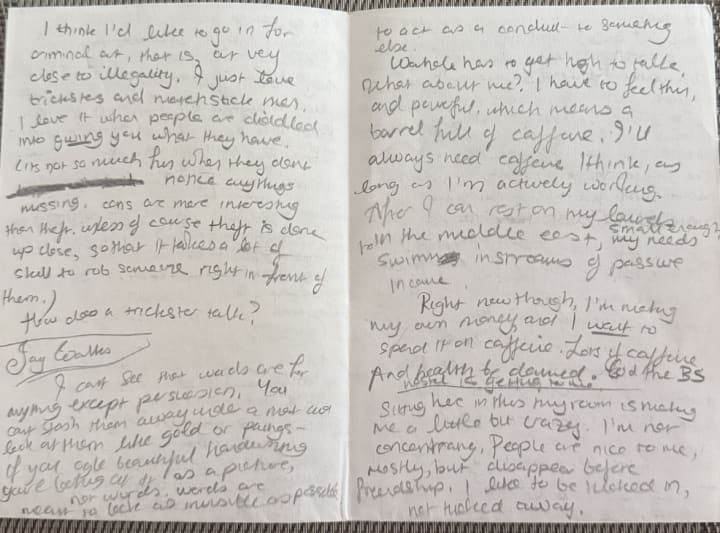 I think I'd like to go in for
criminal art, that is, art very
close to illegality. I just love
tricksters and matchstick men.
I love it when people are diddled
into giving you what they have.
(its not so much fun when they dont
notice anythings
missing. cons are more interesting
than theft, unless of course theft is done
up close, so that it takes a lot of
skill to rob someone right in front of
them.)
How does a trickster talk?
Jay Walks
I cant see that words are for
anything except persuasion. You
cant stash them away under a mat and
look at them like gold or paintings -
if you ogle beautiful handwriting
you're looking at it as a picture,
not words. words are
meant to look as invisible as possible
to act as a conduit to something
else.
Warhole has to get high to talk.
What about me? I have to feel thin,
and powerful, which means a
barrel full of caffeine. I'll
always need caffeine I think, as
long as I'm actively working.
After I can rest on my laurels
in the middle east, my needs small enough
to swim in streams of passive
income.
Right now though, I'm making
my own money, and I want to
spend it on caffeine. Lots of caffeine
And health be damned. God the BS
hostel is getting to me.
Sitting here in this tiny room is making
me a little bit crazy. I'm not
concentrating. People are nice to me,
mostly, but disappear before
friendship. I like to be tucked in,
not tucked away.